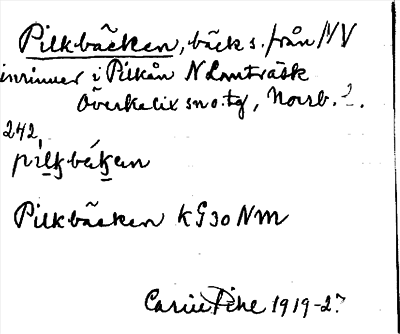 Pilkbäcken, bäck s. från NV
inrinner i Pilkån N Lomträsk
Överkalix sn o. tg, Norrb. l.
242
pilkbäken
Pilkbäcken KG30 NM
1919-27